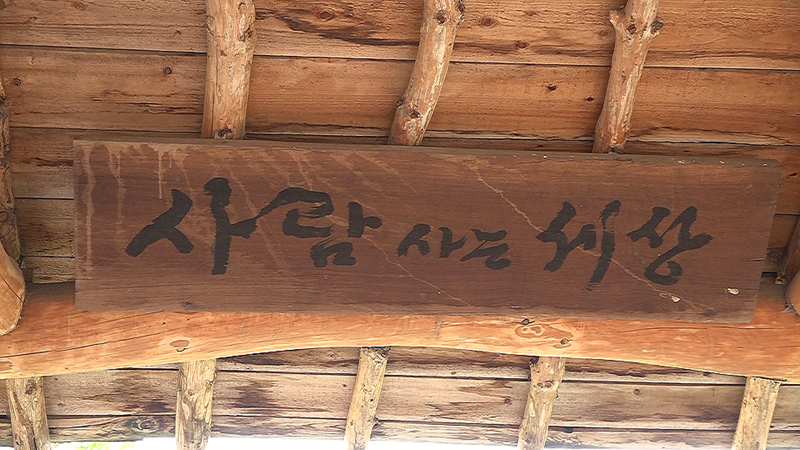 사람 사는 세상